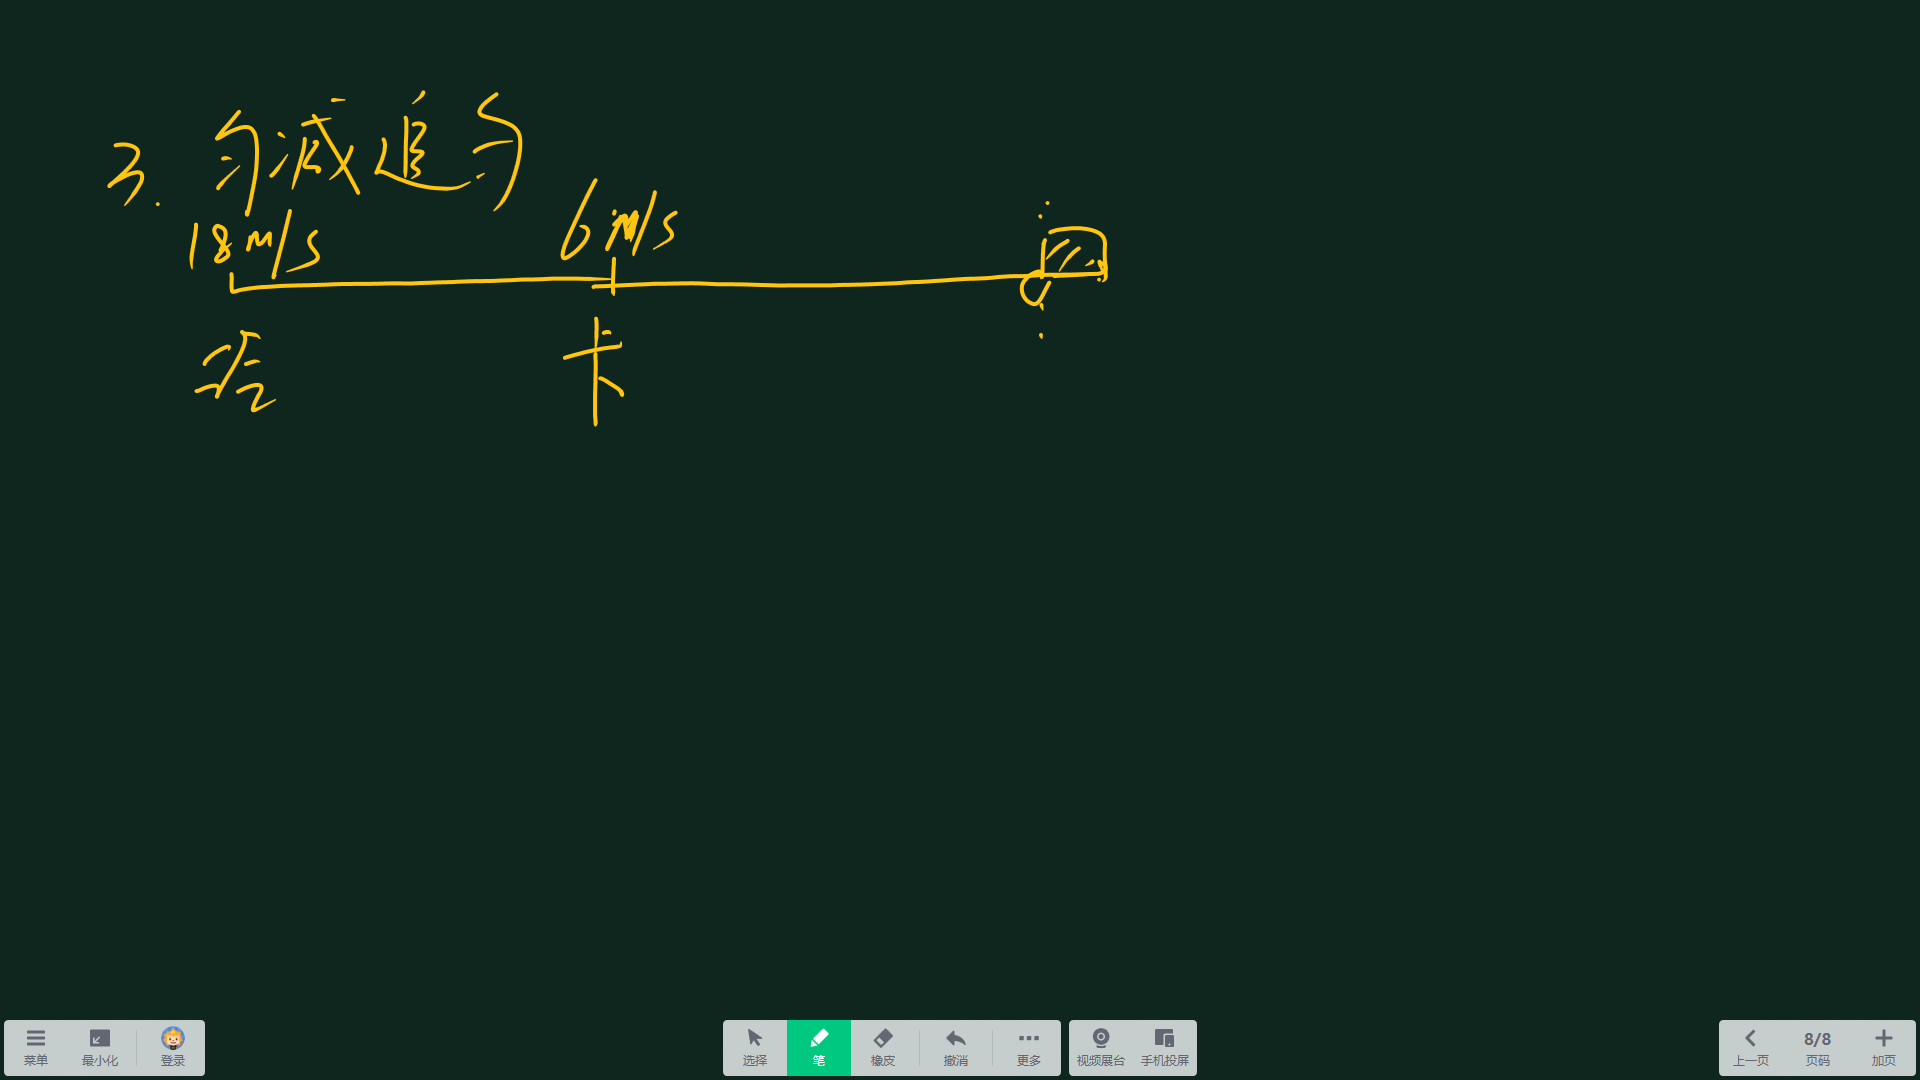 3. 匀减追匀
18m/s 6m/s
卡
菜单 最小化 登录 选择 笔 橡皮 撤消 更多 视频展台 手机投屏 上一页 8/8 页码 加页